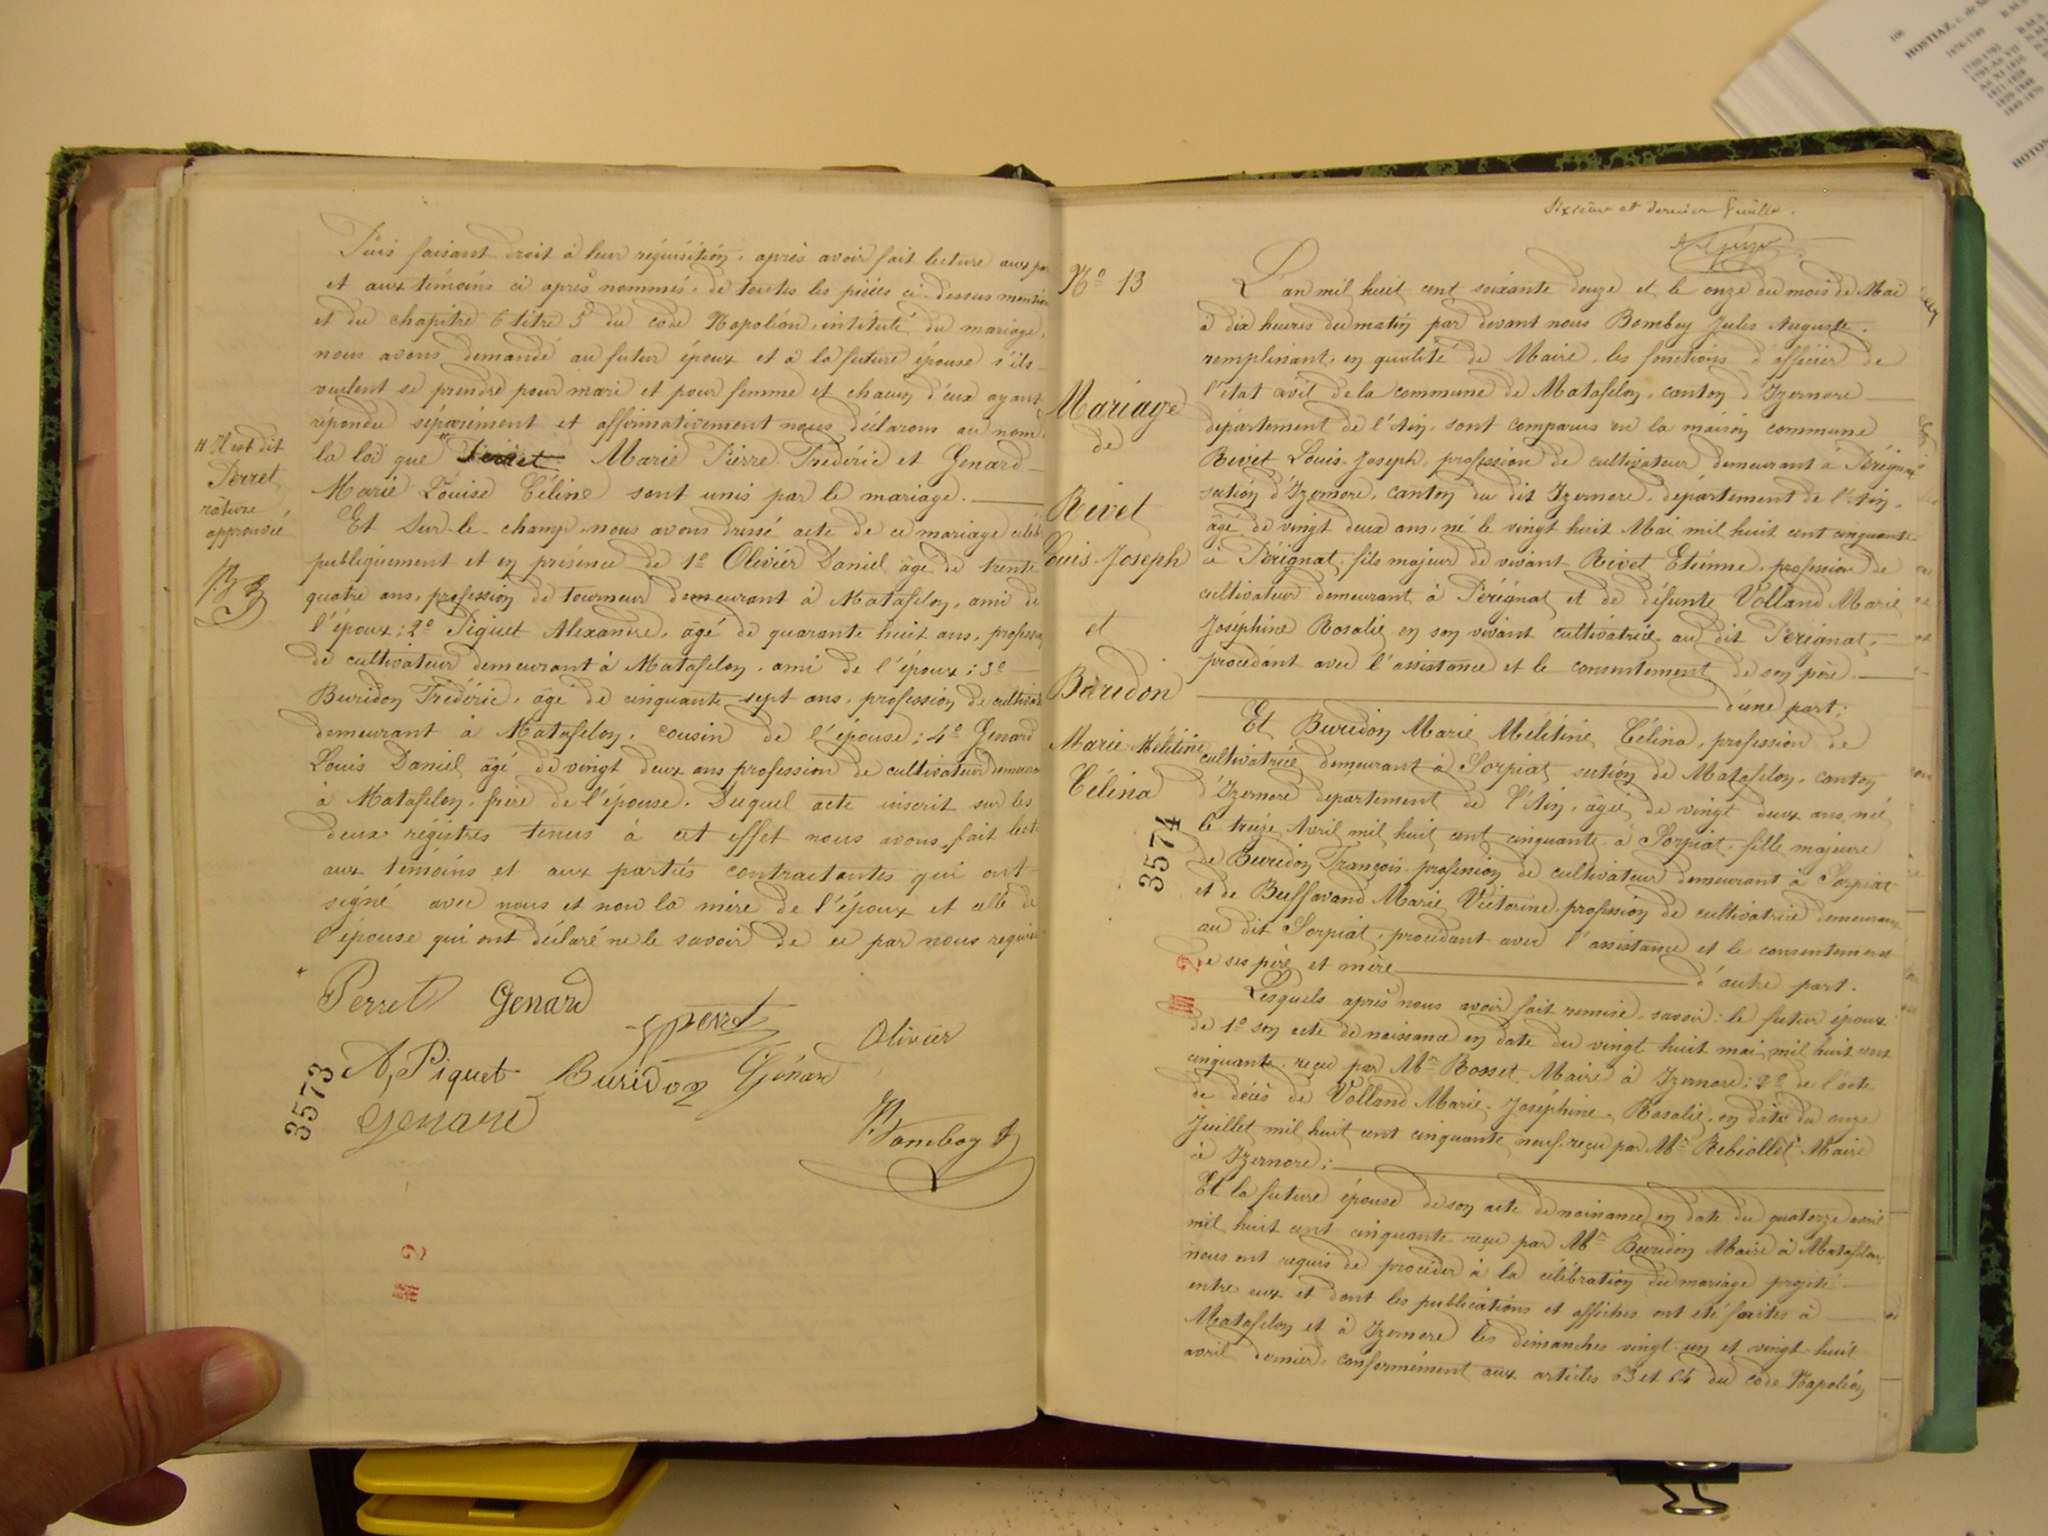 Puis faisant droit à leur réquisition, après avoir fait lecture aux
et aux témoins ci après nommés, de toutes les pièces ci-dessus
et du chapitre 6 titre 5 du code Napoléon, intitulé du mariage,
nous avons demandé au futur époux et à la future épouse s'ils
veulent se prendre pour mari et pour femme et chacun d'eux ayant
répondu séparément et affirmativement nous déclarons au nom
la loi que Perret Marie Pierre Frédéric et Genard
Marie Louise Céline sont unis par le mariage.
Et Sur-le-champ nous avons dressé acte de ce mariage
publiquement et en présence de 1º Olivier Daniel âgé de trente
quatre ans, profession de tourneur demeurant à Matafelon, ami de
l'époux; 2º Piquet Alexandre, âgé de quarante huit ans,
de cultivateur demeurant à Matafelon, ami de l'époux; 3º
Buridon Frédéric, âgé de cinquante sept ans, profession de
demeurant à Matafelon, cousin de l'épouse; 4º Genard
Louis Daniel âgé de vingt deux ans profession de cultivateur
à Matafelon, frère de l'épouse. Duquel acte inscrit sur les
deux régistres tenus à cet effet nous avons fait
aux témoins et aux parties contractantes qui ont
signé avec nous et non la mère de l'époux et celle de
l'épouse qui ont déclaré ne le savoir de ce par nous requis
Il est dit
Perret
râture
approuvée
Perret Genard
Perret
Olivier
A, Piquet Buridon Génard
Genard
Bomboy J
3573
Sixième et dernier feuille.
Nº 13
Mariage
de
Rivet
Louis-Joseph
et
Buridon
Marie Mélitine
Célina
3574
L'an mil huit cent soixante douze et le onze du mois de Mai
à dix heures du matin par devant nous Bomboy Jules Auguste.
remplissant, en qualité de Maire, les fonctions d'officier de
l'état civil de la commune de Matafelon, canton d'Izernore
département de l'Ain, sont comparus en la maison commune
Rivet Louis-Joseph, profession de cultivateur demeurant à Pérignat
section d'Izernore, canton du dit Izernore, département de l'Ain,
âgé de vingt deux ans, né le vingt huit Mai mil huit cent cinquante
à Pérignat, fils majeur de vivant Rivet Etienne, profession de
cultivateur demeurant à Pérignat et de défunte Volland Marie
Joséphine Rosalie en son vivant cultivatrice au dit Pérignat,
procédant avec l'assistance et le consentement de son père
d'une part;
Et Buridon Marie Mélitine Célina, profession de
cultivatrice demeurant à Sorpiat section de Matafelon, canton
d'Izernore département de l'Ain, âgée de vingt deux ans, née
le treize Avril mil huit cent cinquante à Sorpiat, fille majeure
de Buridon François profession de cultivateur demeurant à Sorpiat
et de Buffavand Marie Victorine profession de cultivatrice demeurant
au dit Sorpiat, procédant avec l'assistance et le consentement
de ses père et mère d'autre part.
Lesquels après nous avoir fait remise, savoir: le futur époux
de 1º son acte de naissance en date du vingt huit mai mil huit cent
cinquante, reçu par Mr Rosset Maire à Izernore; 2º de l'acte
de décès de Volland Marie-Joséphine-Rosalie, en date du onze
Juillet mil huit cent cinquante neuf, reçu par Mr Rebiollet Maire
à Izernore;
Et la future épouse de son acte de naissance en date du quatorze avril
mil huit cent cinquante reçu par Mr Buridon Maire à Matafelon,
nous ont requis de procéder à la célébration du mariage projeté
entre eux et dont les publications et affiches ont été faites à
Matafelon et à Izernore les dimanches vingt-un et vingt-huit
avril dernier, conformément aux articles 63 et 64 du code Napoléon